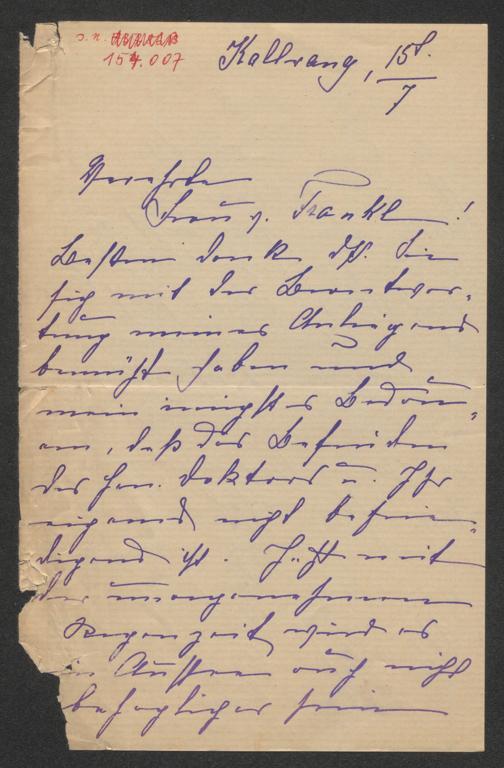 154.007
Kallwang, 15t.
7
Verehrte
Frau v. Frankl!
Besten Dank dß. Sie
sich mit der Beantwor-
tung meines Anliegens
bemüht haben und
mein innigstes Bedau-
ern, daß das Befinden
des Hrn. Doktors u. Ihr
eigenes nicht befrie-
digend ist. Jetzt mit
der unangenehmen
Regenzeit wird es
in Aussee auch nicht
behaglicher sein